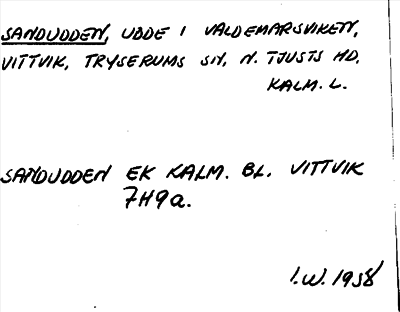 SANDUDDEN, UDDE I VALDEMARSVIKEN,
VITTVIK, TRYSERUMS SN, N. TJUSTS HD,
KALM. L.
SANDUDDEN EK KALM. BL. VITTVIK
7H9a.
I.W. 1958